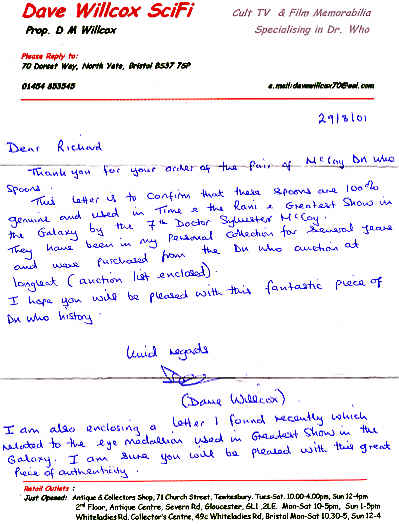 Dave Willcox SciFi
Cult TV & Film Memorabilia
Prop. D M Willcox
Specialising in Dr. Who
Please Reply to:
70 Dorset Way, North Yate, Bristol BS37 7SP
01454 853545
e.mail:davewillcox70@aol.com
29/8/01
Dear Richard
Thank you for your order of the pair of McCoy Dr Who
Spoons.
This letter is to confirm that these spoons are 100%
genuine and used in Time & the Rani & Greatest Show in
the Galaxy by the 7th Doctor Sylvester McCoy.
They have been in my Personal Collection for several years
and were purchased from the Dr Who auction at
longleat (auction list enclosed).
I hope you will be pleased with this fantastic piece of
Dr Who history.
Kind regards
(Dave Willcox)
I am also enclosing a letter I found recently which
related to the eye medallion used in Greatest Show in the
Galaxy. I am sure you will be pleased with this great
Piece of authenticity.
Retail Outlets :
Just Opened: Antique & Collectors Shop, 71 Church Street, Tewkesbury. Tues-Sat. 10.00-4.00pm, Sun 12-4pm
2nd Floor, Antique Centre, Severn Rd, Gloucester, GL1 .2LE. Mon-Sat 10-5pm, Sun 1-5pm
Whiteladies Rd, Collector's Centre, 49c Whiteladies Rd, Bristol Mon-Sat 10.30-5, Sun 12-4